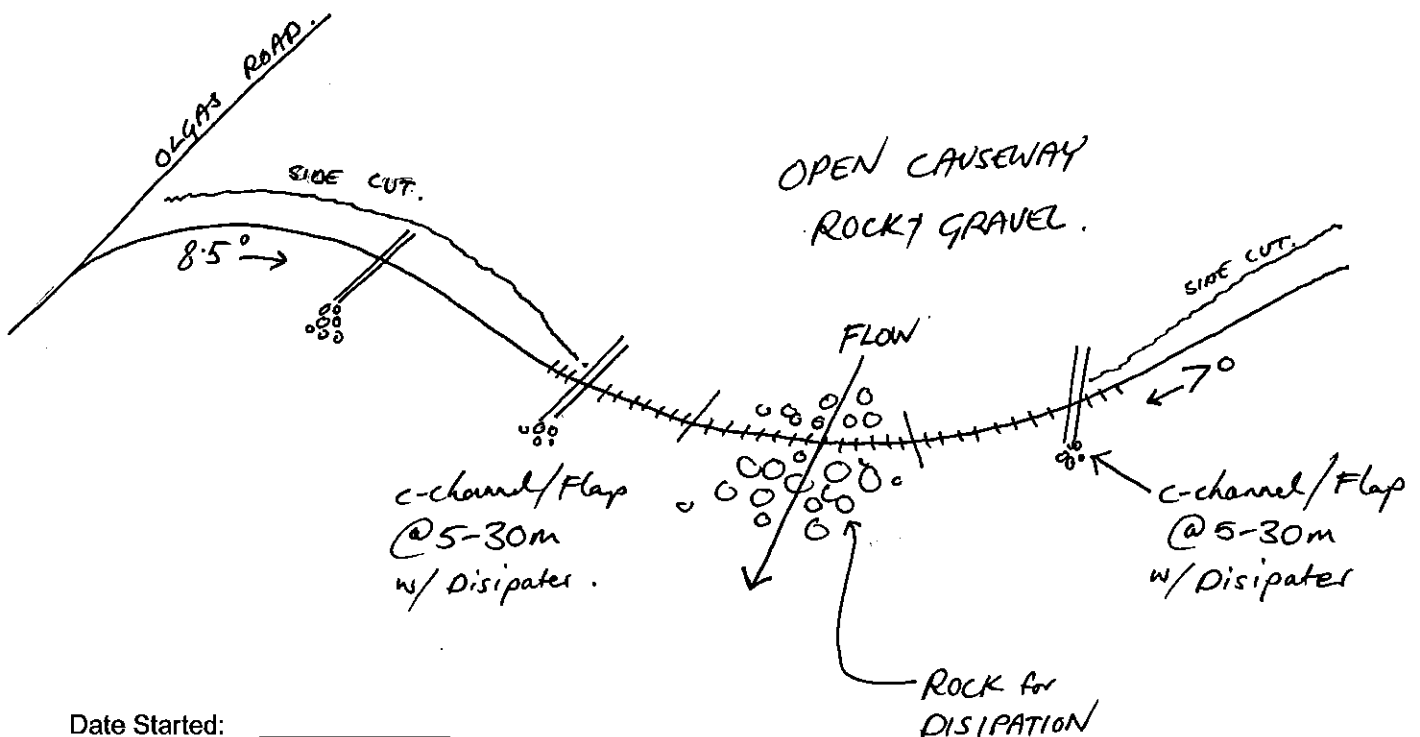 OLGAS ROAD.
SIDE CUT.
8.5°
OPEN CAUSEWAY
ROCKY GRAVEL.
SIDE CUT.
FLOW
7°
c-channel/Flap
@ 5-30m
w/ Disipater.
c-channel/Flap
@ 5-30m
w/ Disipater
ROCK for
DISIPATION
Date Started: